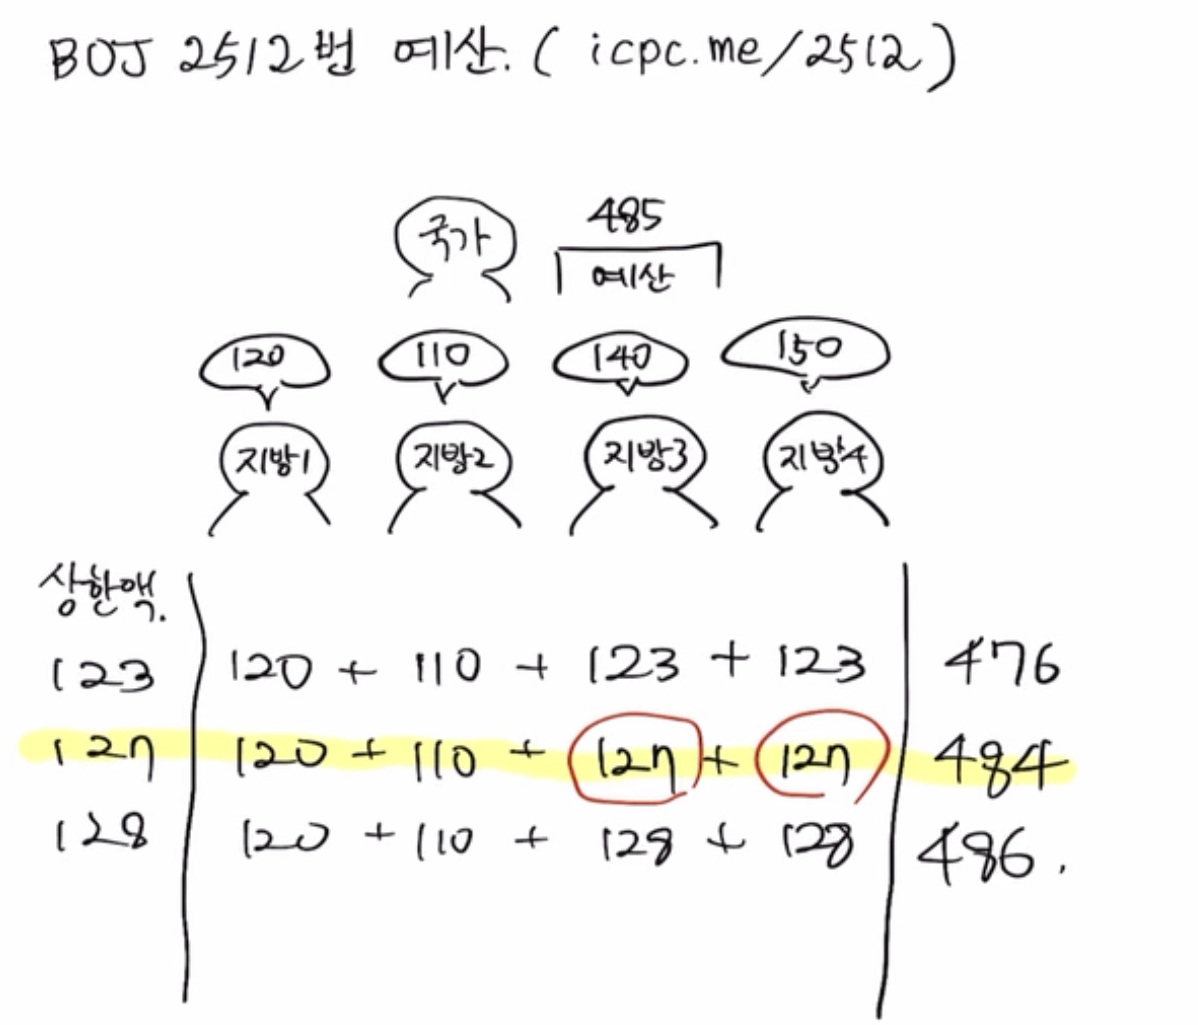 BOJ 2512번 예산. ( icpc.me/2512 )
국가 485
예산
120 110 140 150
지방1 지방2 지방3 지방4
상한액.
123 120 + 110 + 123 + 123 476
127 120 + 110 + 127 + 127 484
128 120 + 110 + 128 + 128 486.